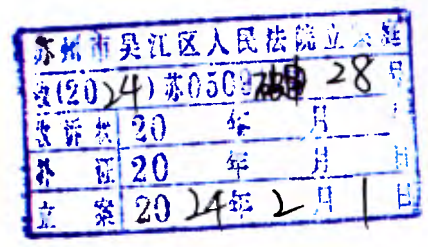 苏州市吴江区人民法院立案庭
收(2024)苏0509破申28号
收诉状 20 年 月 日
补证 20 年 月 日
立案 2024年2月1日